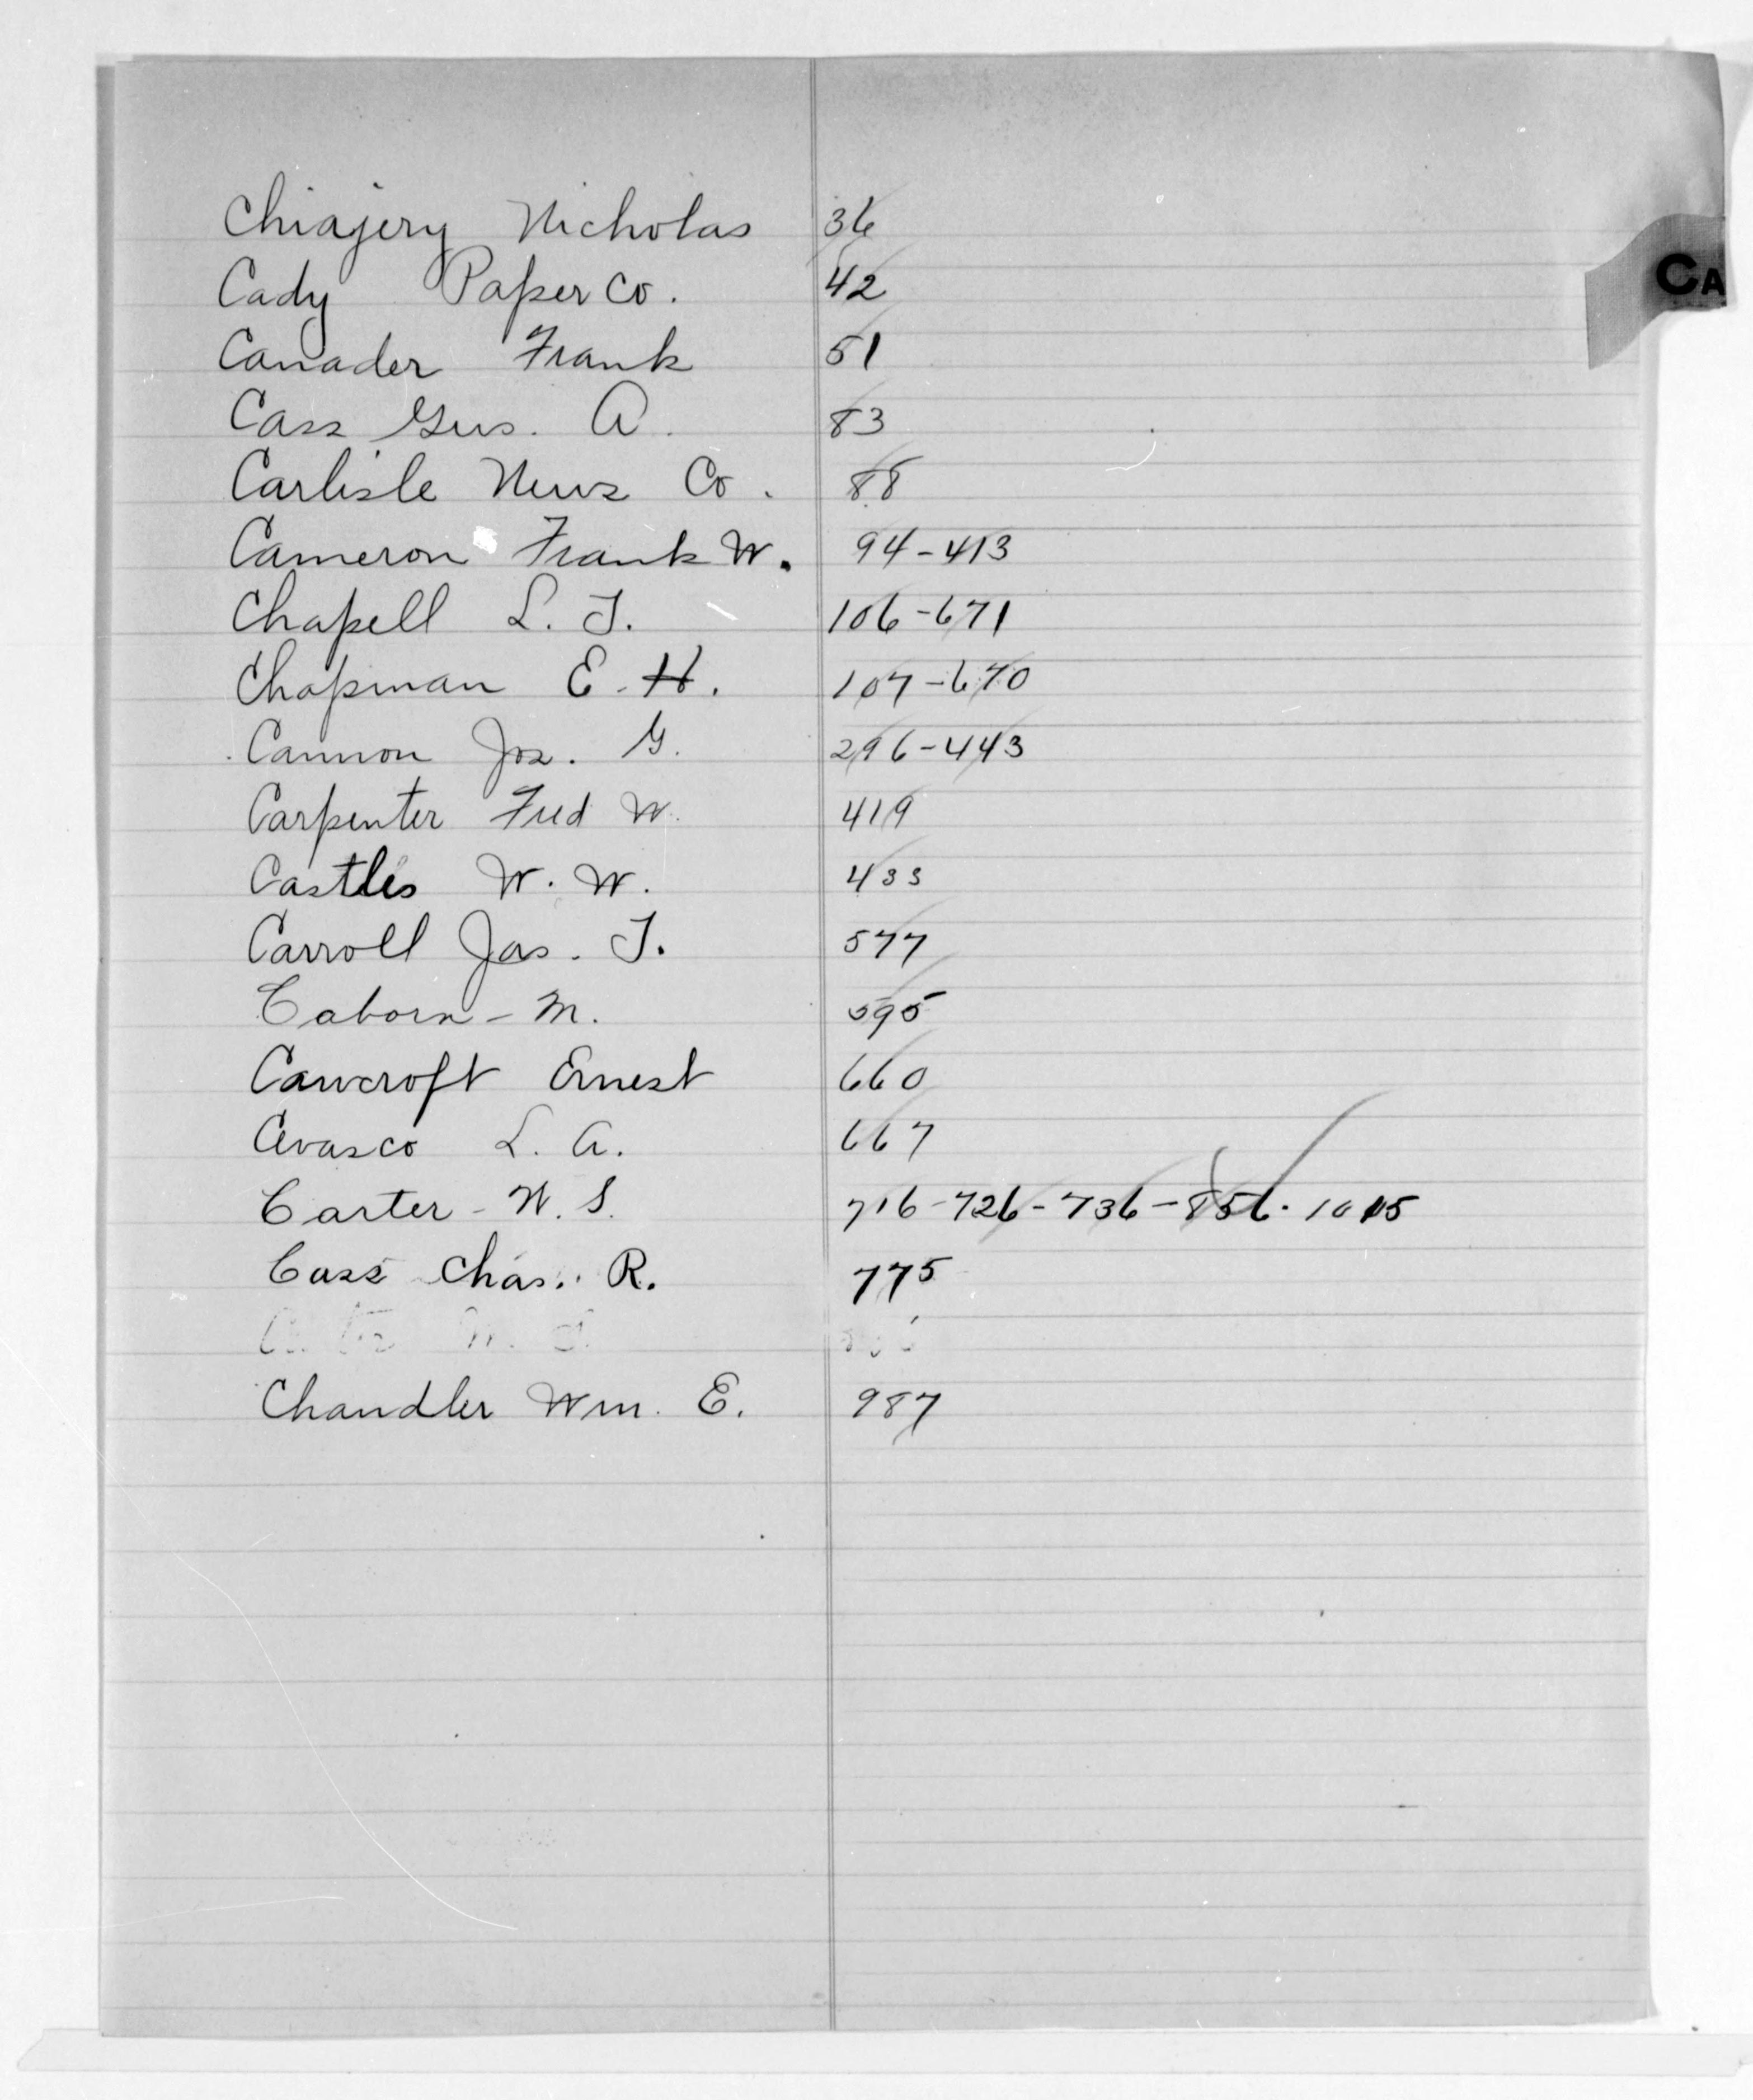 CA
Chiajery Nicholas 36
Cady Paper Co. 42
Canader Frank 51
Cass Gus. A. 83
Carlisle News Co. 88
Cameron Frank W. 94-413
Chapell L. T. 106-671
Chapman E. H. 107-670
Cannon Jos. G. 296-443
Carpenter Fred W. 419
Castles W. W. 433
Carroll Jas. T. 577
Caborn - M. 595
Cawcroft Ernest 660
Cavasco L. A. 667
Carter - W. S. 716-726-736-856-1015
Cass Chas. R. 775
Chandler Wm. E. 987